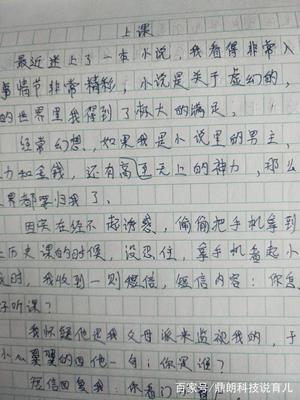 上课
最近迷上了一本小说，我看得非常入
事情节非常精彩，小说是关于虚幻的，
的世界里我得到了极大的满足。
经常幻想，如果我是小说里的男主，
力和金钱，还有高还天上的神力，那么
界都要归我了。
因实在经不起诱惑，偷偷把手机拿到
上历史课的时候，没忍住，拿手机看起小
这时，我收到一则短信，短信内容：你怎
好听课？
我怀疑他是我父母派来监视我的，于
小心翼翼的回他一句：你是谁？
短信回复我：你看门
百家号/鼎朗科技说育儿